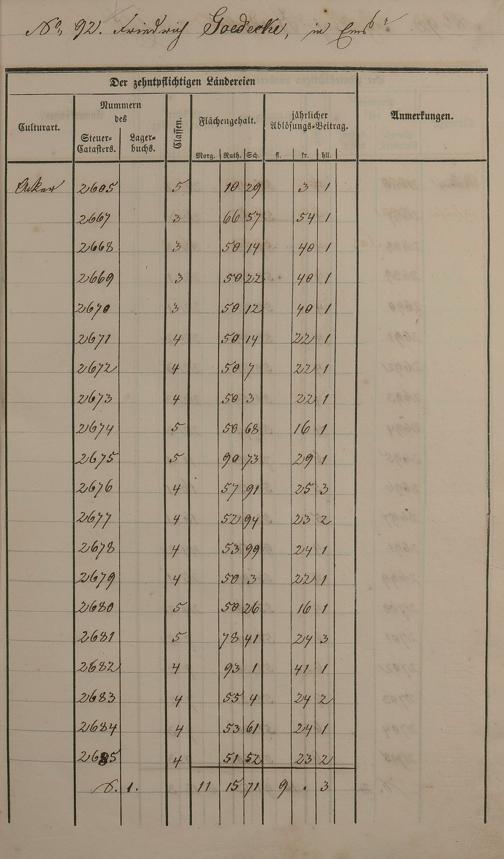 No. 92. Friedrich Goedecke, in Ems
Der zehntpflichtigen Ländereien
Culturart.
Nummern des
Steuer-Catasters.
Lager-buchs.
Classen.
Flächengehalt.
Morg. Ruth. Sch.
jährlicher Ablösungs-Beitrag.
fl. kr. hll.
Anmerkungen.
Acker 2605 5 10 29 3 1
2667 3 66 57 54 1
2668 3 50 14 40 1
2669 3 50 22 40 1
2670 3 50 12 40 1
2671 4 50 14 22 1
2672 4 50 7 22 1
2673 4 50 3 22 1
2674 5 50 68 16 1
2675 5 90 73 29 1
2676 4 57 91 25 3
2677 4 52 94 23 2
2678 4 53 99 24 1
2679 4 50 3 22 1
2680 5 50 26 16 1
2681 5 78 41 24 3
2682 4 93 1 41 1
2683 4 55 4 24 2
2684 4 53 61 24 1
2685 4 51 52 23 2
S. 1. 11 15 71 9 . 3